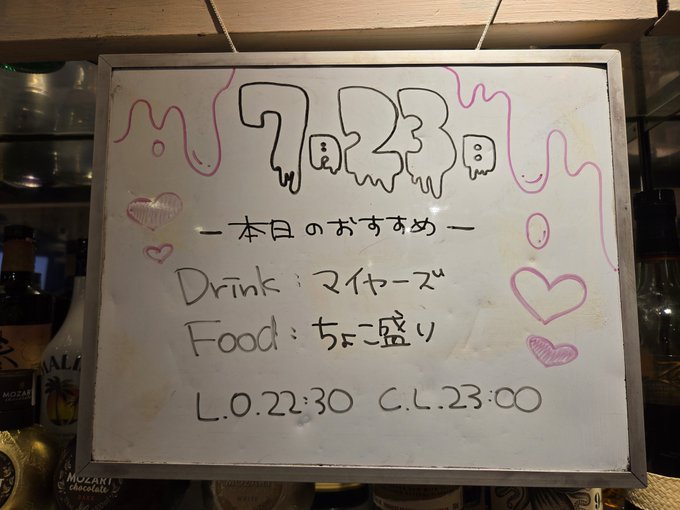 7.23.
ー本日のおすすめー
Drink: マイヤーズ
Food: ちょこ盛り
L.O.22:30 C.L.23:00
MALIB
MOZART
MOZART
chocolate
MOZART
WHITE